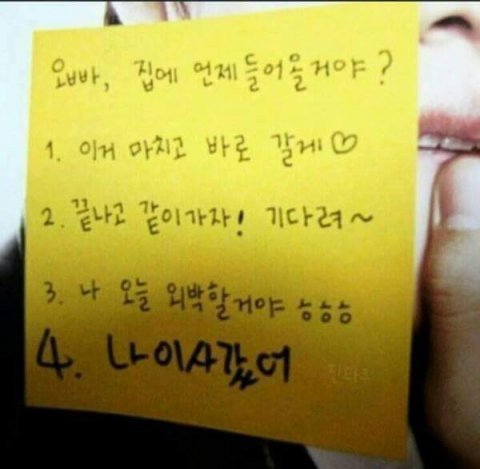 오빠, 집에 언제 들어올거야?
1. 이거 마치고 바로 갈게♡
2. 끝나고 같이가자! 기다려~
3. 나 오늘 외박할거야 ㅎㅎㅎ
4. 나 이사갔어